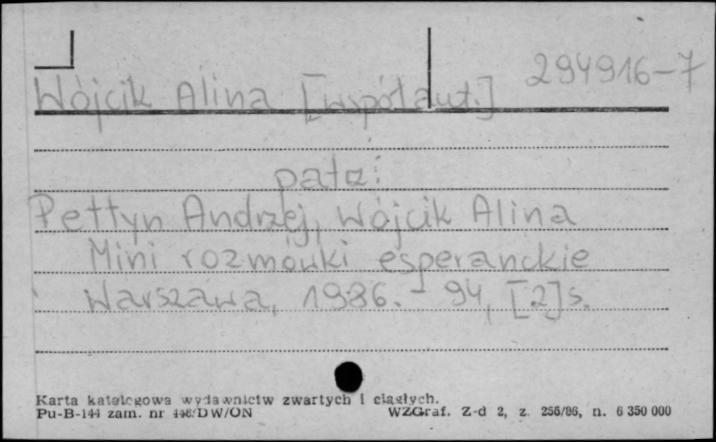 294916-7
Wójcik Alina [współaut.]
patz:
Pettyn Andrzej, Wójcik Alina
Mini rozmówki esperanckie
Warszawa, 1986. - 94, [2] s.
Karta katalogowa wydawnictw zwartych i ciągłych.
Pu-B-144 zam. nr 446/DW/ON WZGraf. Z-d 2, z. 256/86, n. 6 350 000